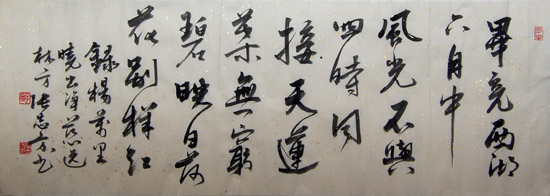 畢竟西湖
六月中
風光不與
四時同
接天蓮
葉無窮
碧映日荷
花别樣紅
錄楊萬里
曉出淨慈送
林子方張志方書